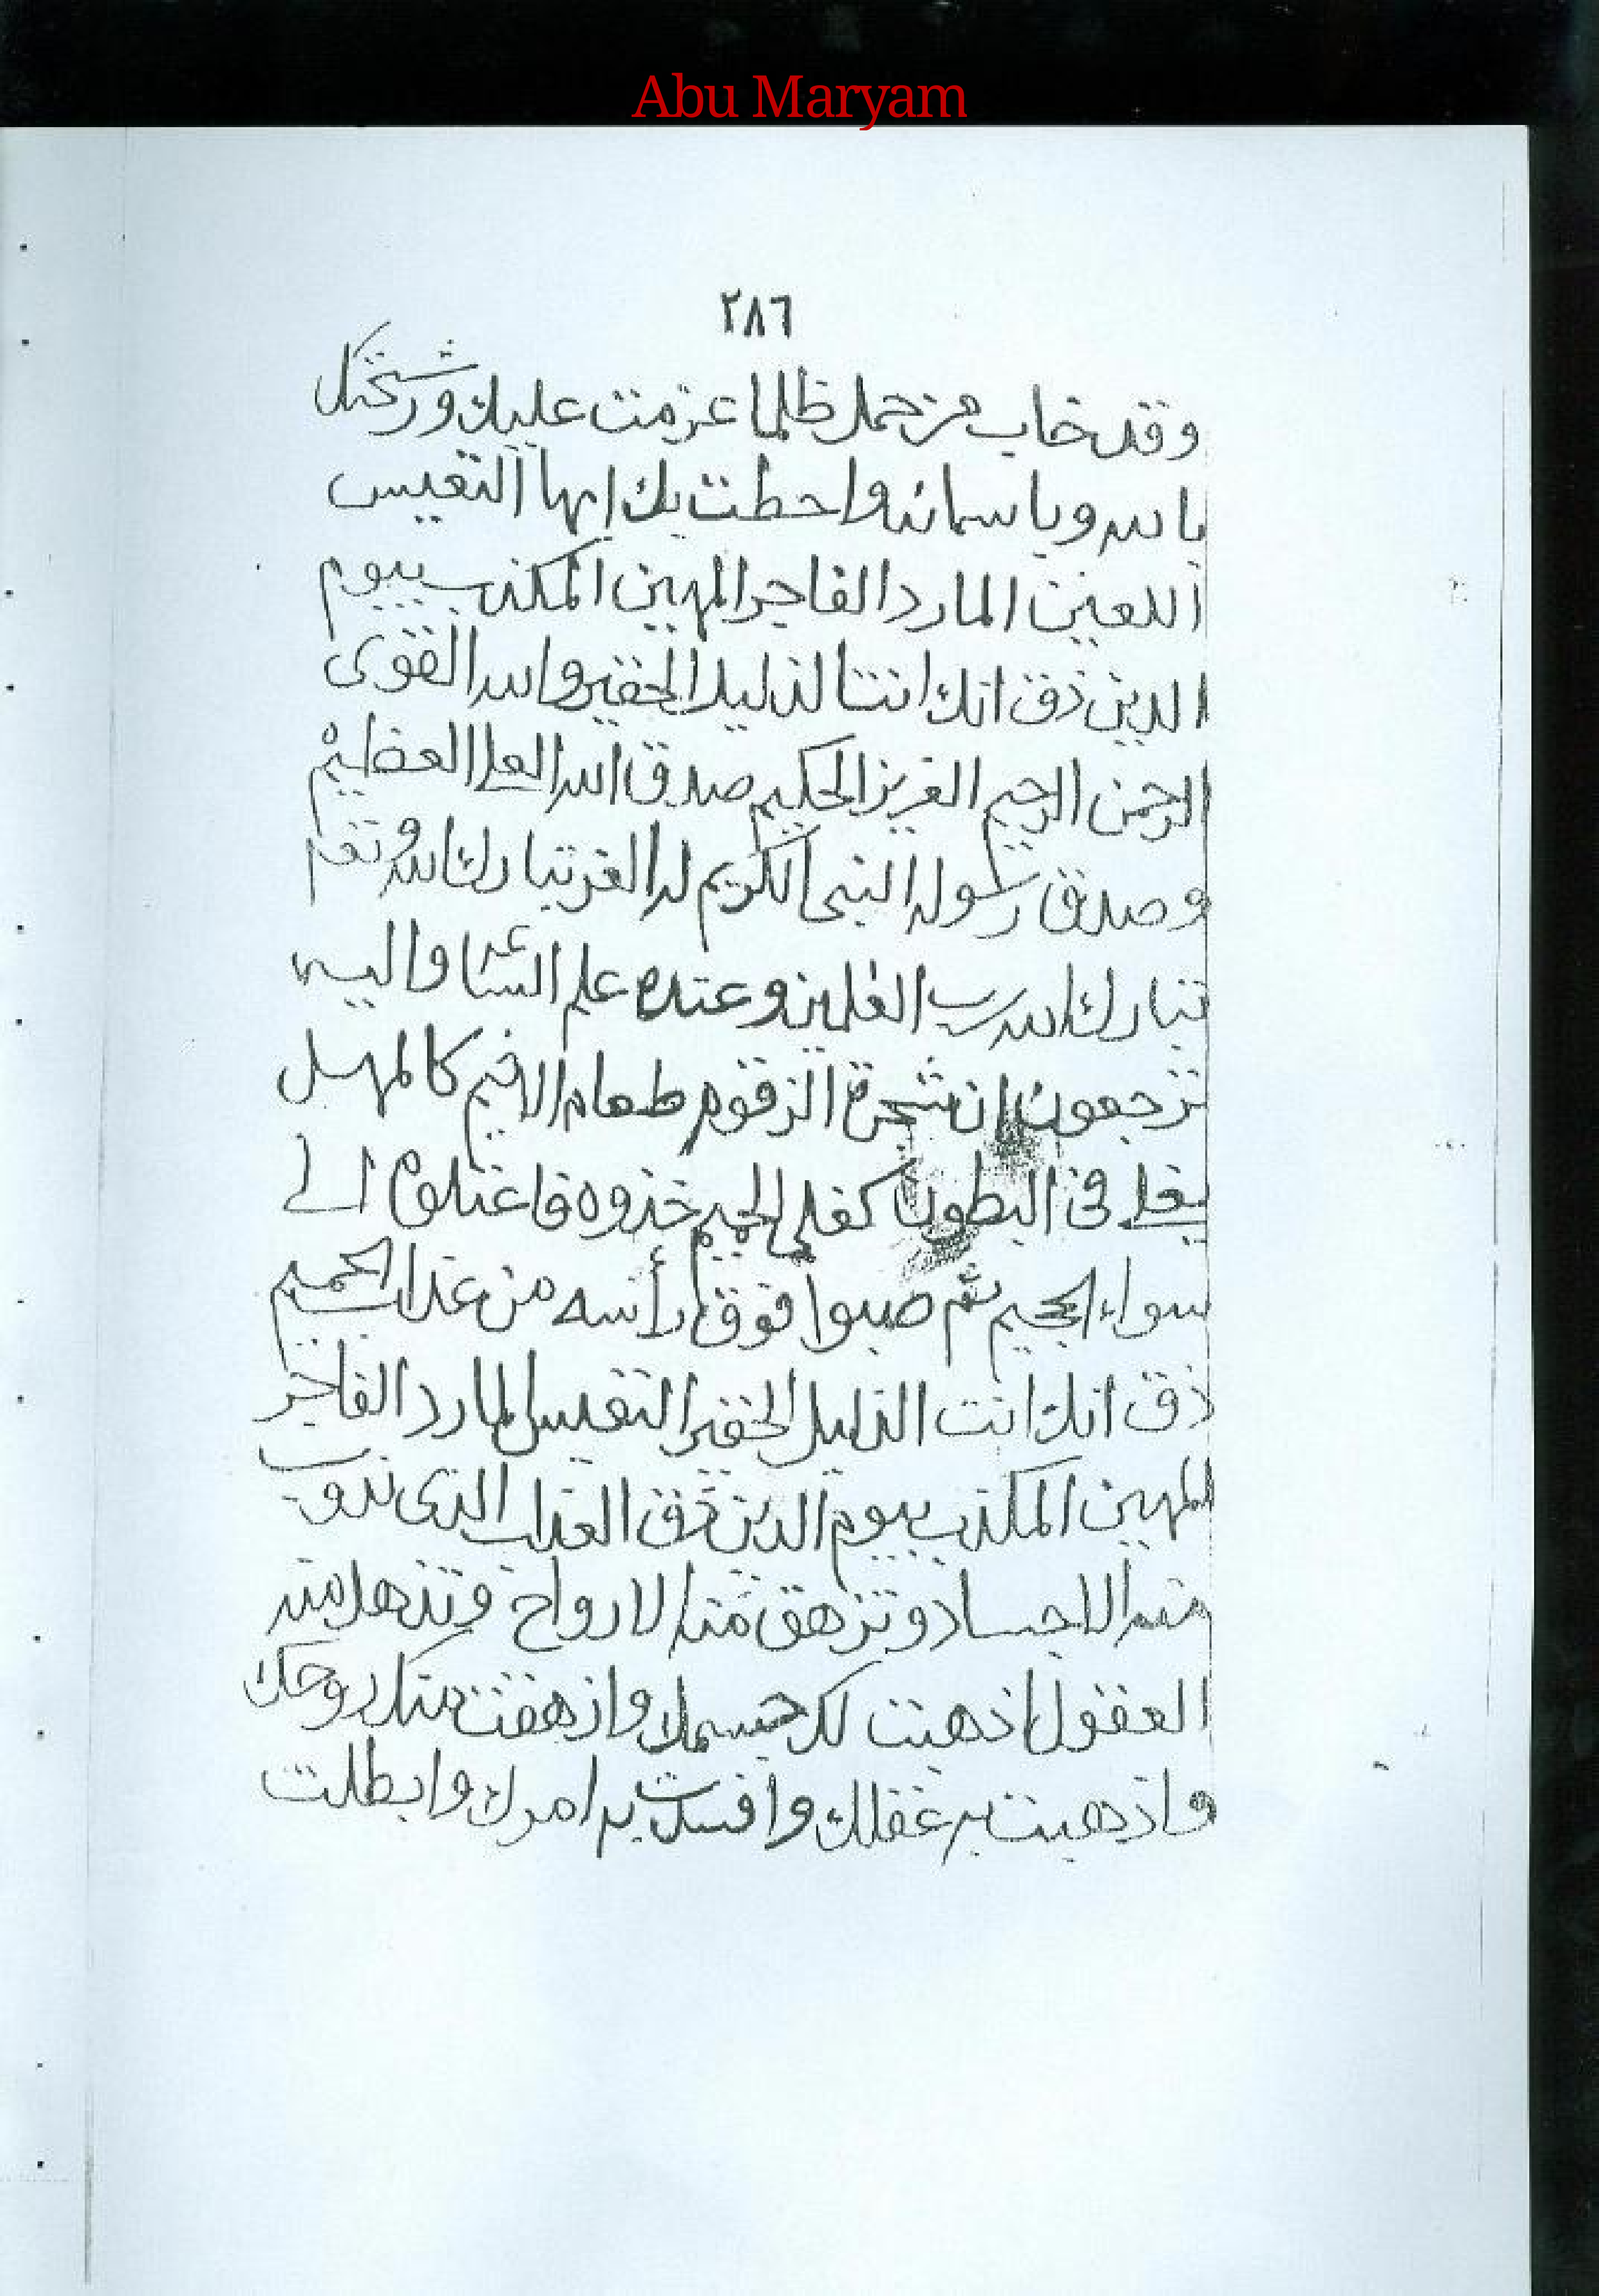 Abu Maryam
٢٨٦
وقد خاب من حمل ظلما عزمت عليك و
بالله وباسمائه واحطت بك ايها التعيس
اللعين المارد الفاجر المهين المكذب بيوم
الدين ذق انك انت الذليل الحقير والله القوى
الرحمن الرحيم العزيز الحكيم صدق الله العلي العظيم
وصدق رسوله النبى الكريم له العز تبارك الله و
تبارك الله رب العلمين وعنده علم الساعه واليه
ترجعون ان شجرة الزقوم طعام الاثيم كالمهل
يغلي فى البطون كغلى الحميم خذوه فاعتلوه الى
سواء الجحيم ثم صبوا فوق رأسه من عذاب الحميم
ذق انك انت الذليل الحقير التعيس المارد الفاجر
المهين المكذب بيوم الدين ذق العذاب الذى تذوب
منه الاجساد وتزهق منه الارواح وتذهل منه
العقول اذهبت لك جسمك وازهقت منك روحك
واذهبت به عقلك وافسدت به امرك وابطلت